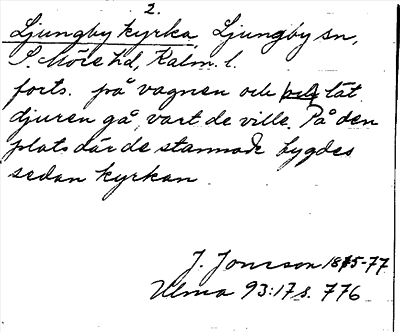 2.
Ljungby kyrka, Ljungby sn,
S. Möre hd, Kalm. l.
forts. på vagnen och lät
djuren gå, vart de ville. På den
plats där de stannade bygdes
sedan kyrkan
J. Jonsson 1875-77
Ulma 93:17 s. 776